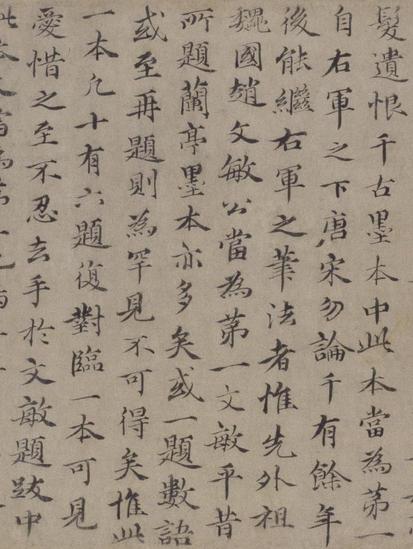 髮遺恨千古墨本中此本當為第一
自右軍之下唐宋勿論千有餘年
後能繼右軍之筆法者惟先外祖
魏國趙文敏公當為第一文敏平昔
所題蘭亭墨本亦多矣或一題數語
或至再題則為罕見不可得矣惟此
一本凡十有六題復對臨一本可見
愛惜之至不忍去手於文敏題跋中